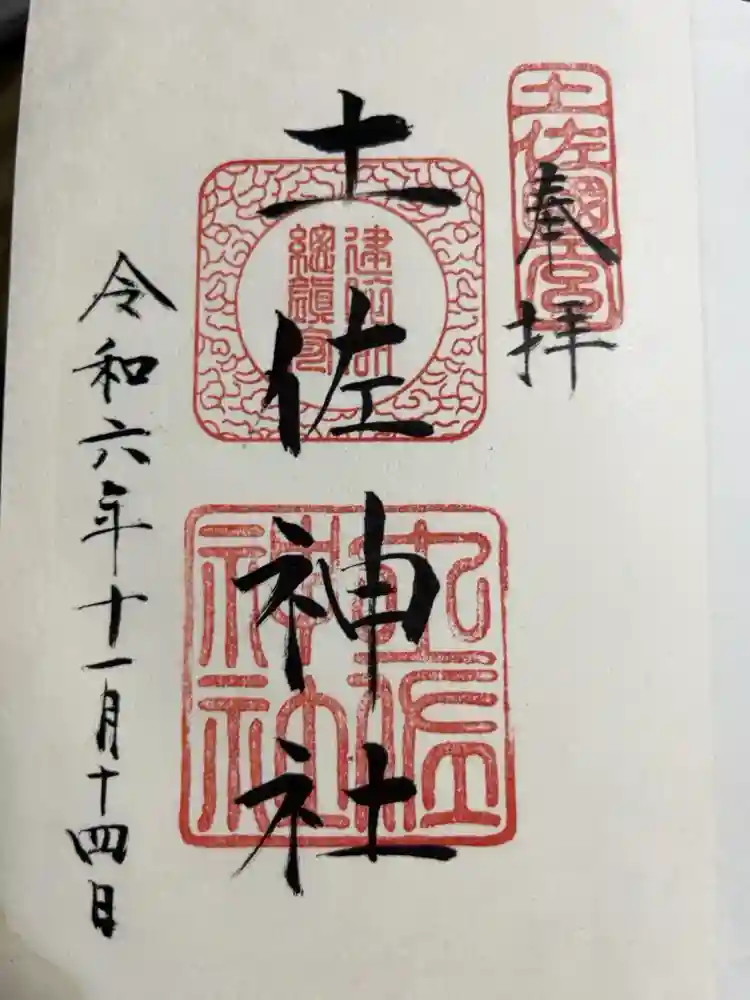 奉拝
土佐國一宮
土佐神社
土佐神社
令和六年十一月十四日